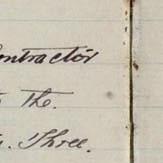 ontractor
The.
Three.